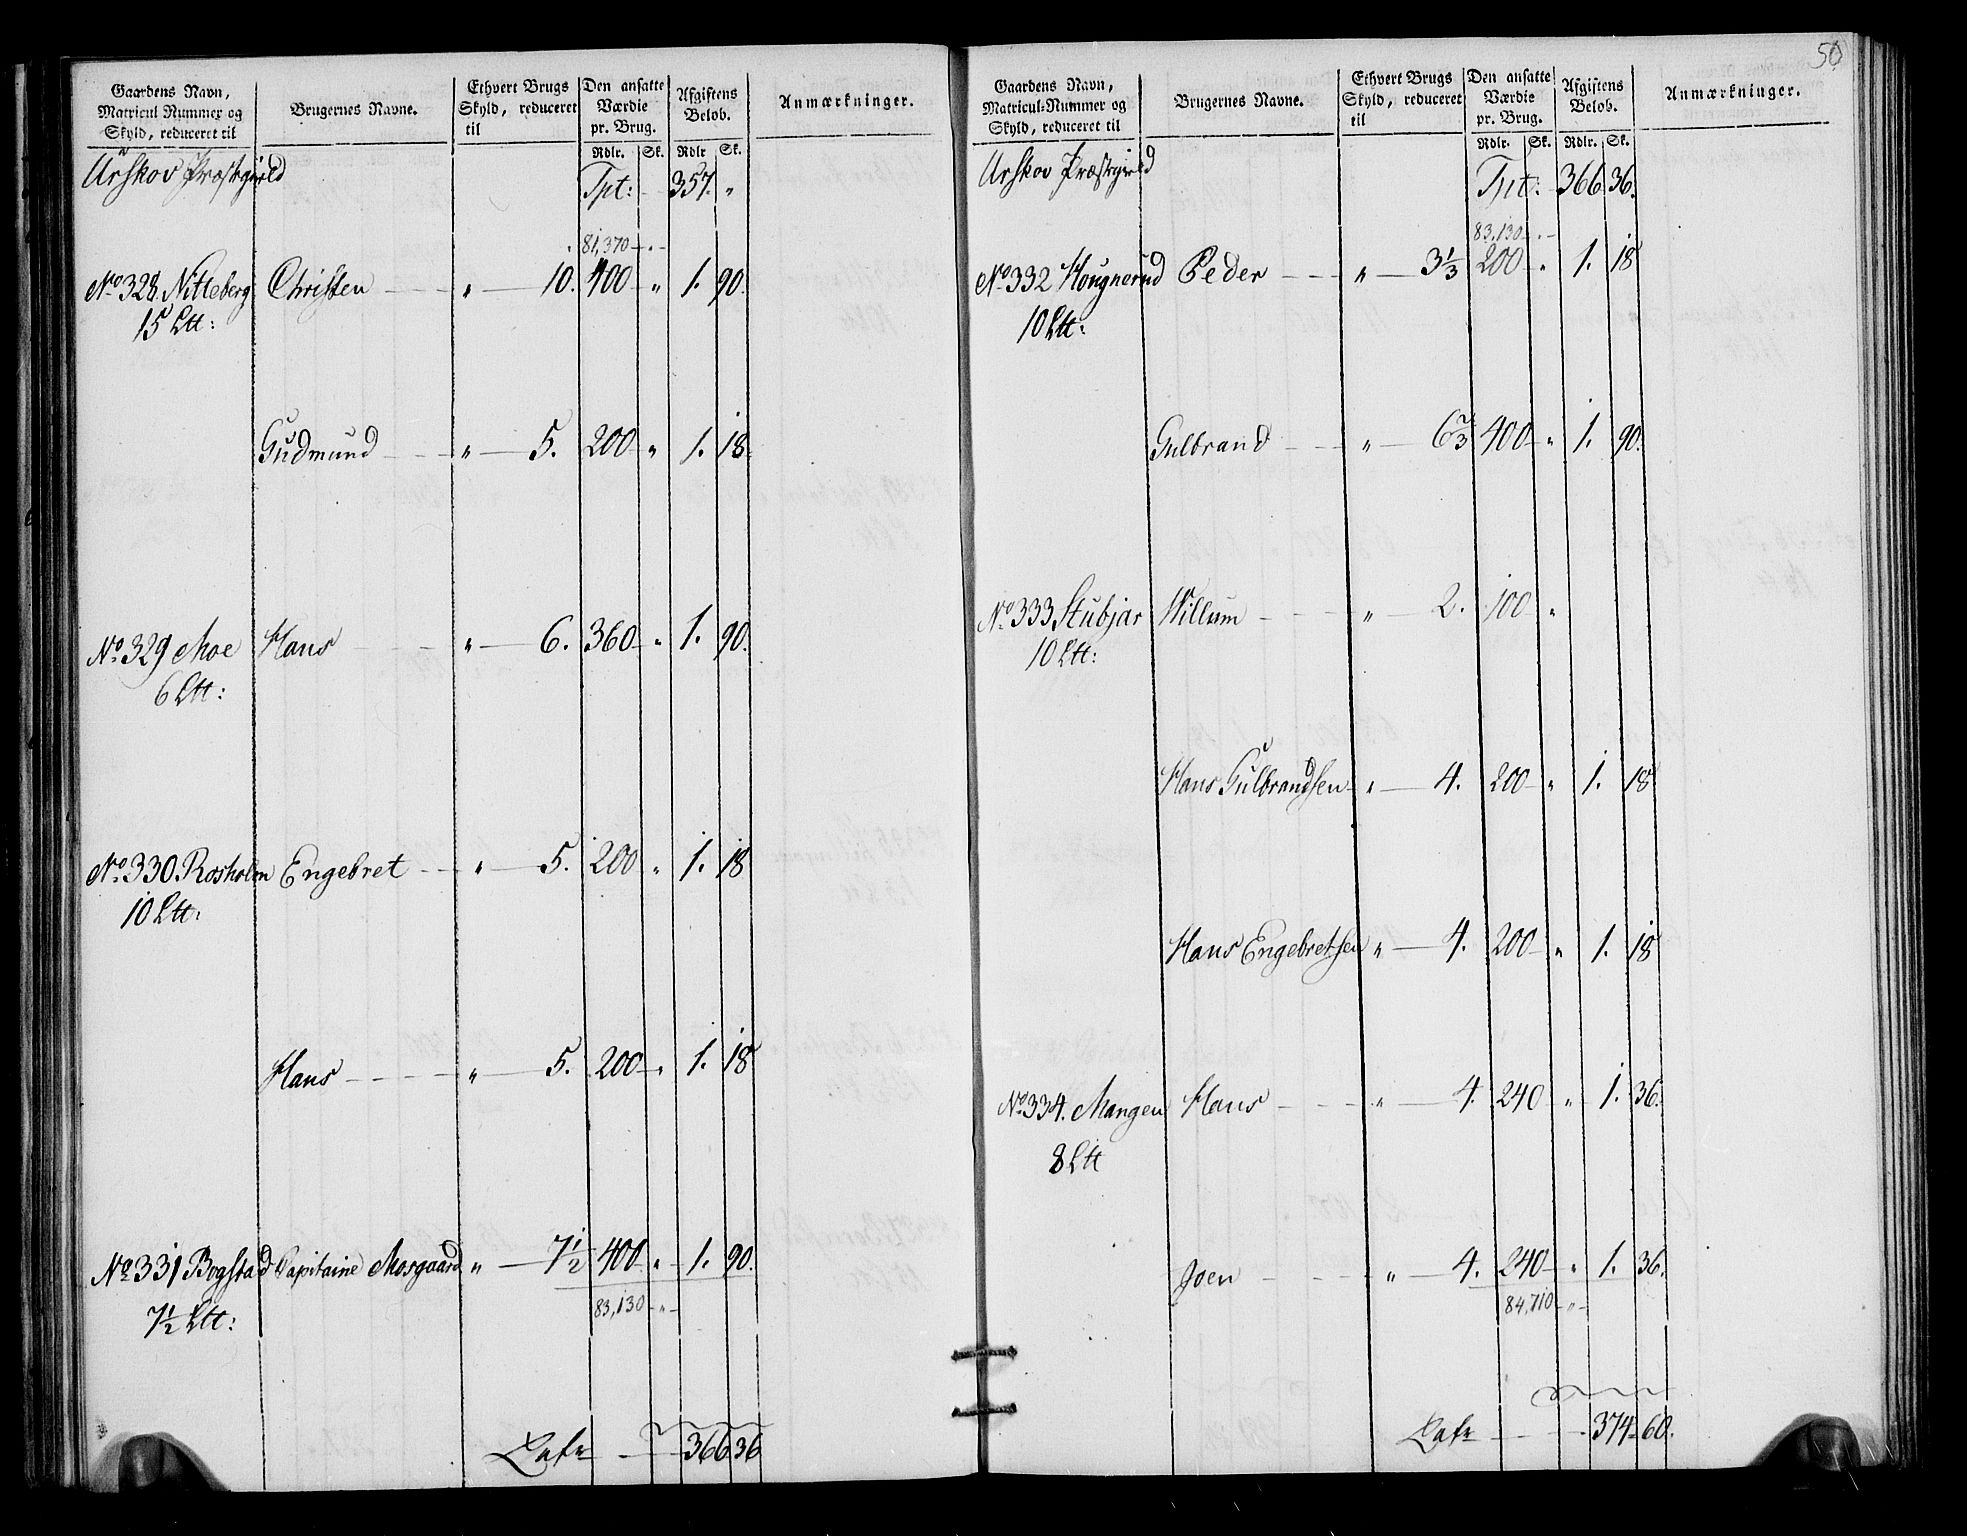 Gaardens Navn, Matricul Nummer og Skyld, reduceret til | Brugernes Navne. | Ethvert Brugs Skyld, reduceret til | Den ansatte Værdie pr. Brug. | Afgiftens Beløb. | Anmærkninger.
Rdlr. | Sk. | Rdlr | Sk.
Urskov Præstegield Tpt: 357. "
81,370 - " -
No 328. Nitteberg Christen " 10. 400 " 1. 90.
15 Ltt:
Gudmund " 5. 200 " 1. 18.
No 329 Moe Hans " 6. 360 " 1. 90.
6 Ltt:
No 330. Rosholm Engebret " 5. 200 " 1. 18
10 Ltt:
Hans " 5. 200 " 1. 18
No 331 Bogstad Capitaine Mosgaard " 7½ 400 " 1. 90.
83,130 - " -
7½ Ltt:
Lats 366 36
50
Gaardens Navn, Matricul-Nummer og Skyld, reduceret til | Brugernes Navne. | Ethvert Brugs Skyld, reduceret til | Den ansatte Værdie pr. Brug. | Afgiftens Beløb. | Anmærkninger.
Rdlr. | Sk. | Rdlr. | Sk.
Urskov Præstegield Tpt: 366 36.
83,130 - " -
No 332 Hougnerud Peder " 3⅓ 200 " 1. 18
10 Ltt:
Gulbrand " 6⅔ 400 " 1. 90.
No 333 Stubjar Willum " 2. 100 "
10 Ltt:
Hans Gulbrandsen " 4. 200 " 1. 18
Hans Engebretsen " 4. 200 " 1. 18
No 334. Mangen Hans " 4. 240 " 1. 36.
8 Ltt
Joen " 4. 240 " 1. 36.
84,710 - " -
Lats 374 60.